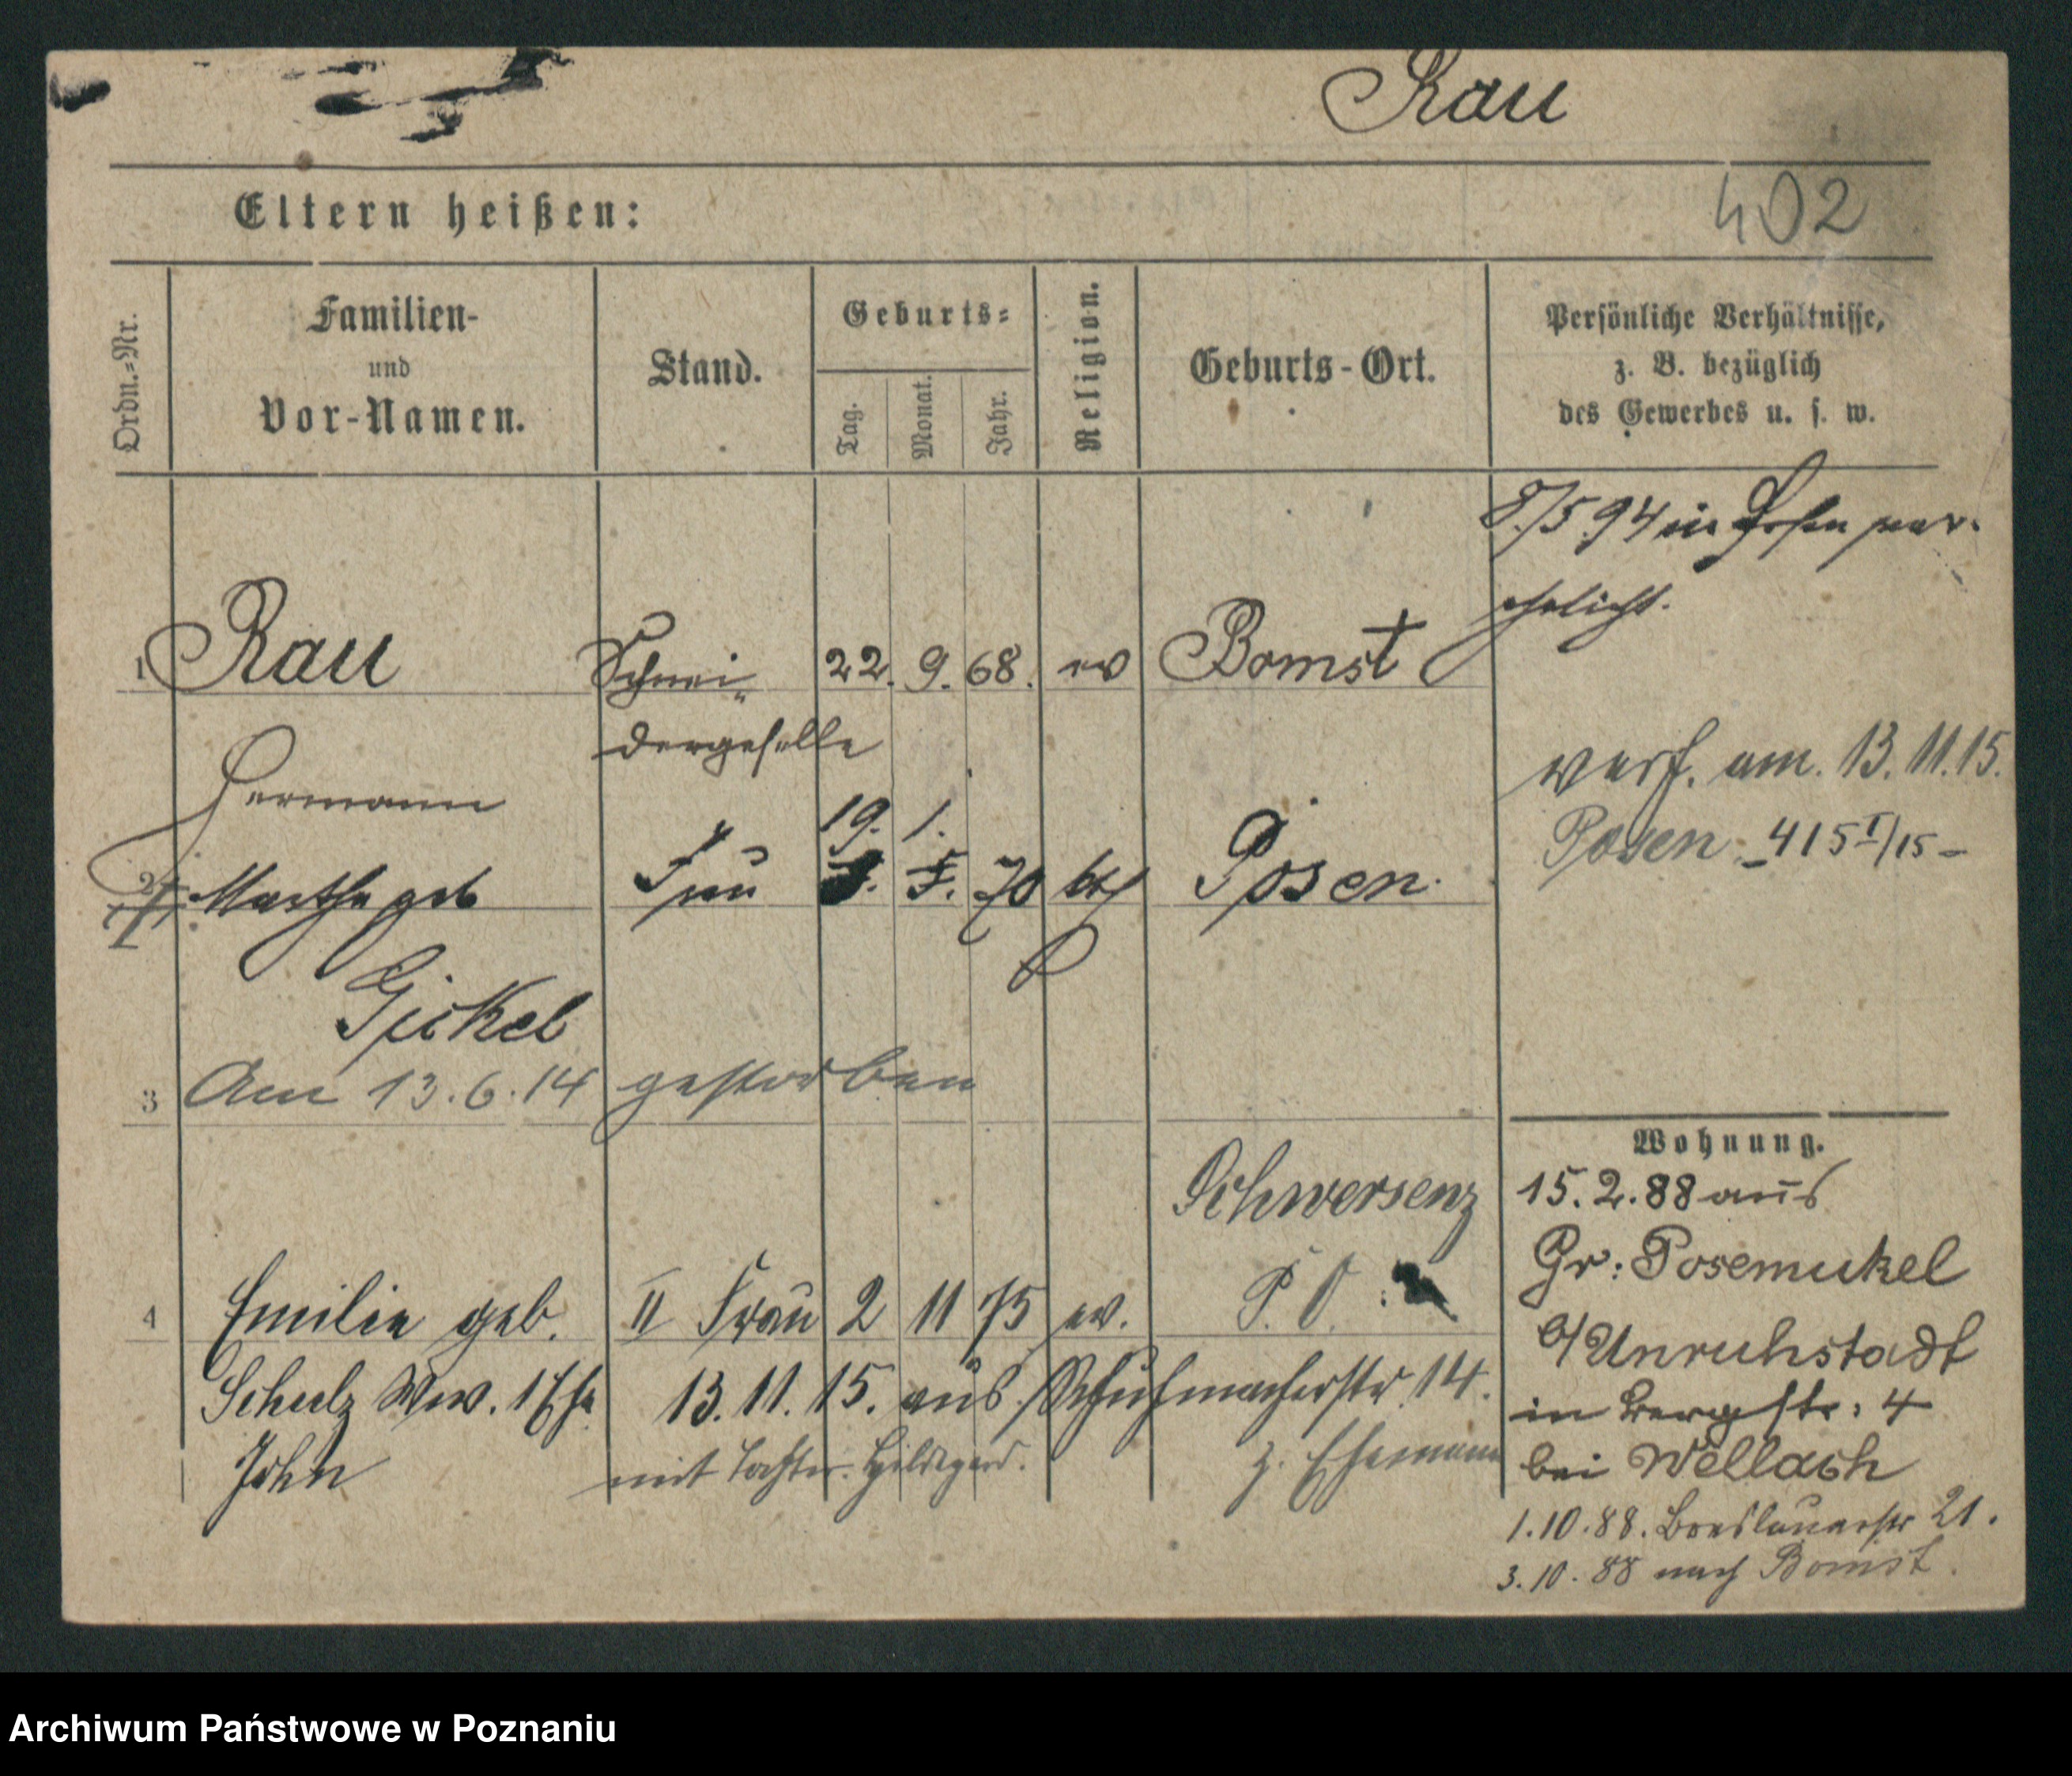 Rau
402
Eltern heißen:
Ordn.-Nr.
Familien-
und
Vor-Namen.
Stand.
Geburts-
Tag.
Monat.
Jahr.
Religion.
Geburts-Ort.
Persönliche Verhältnisse,
z. B. bezüglich
des Gewerbes u. s. w.
8/5 94 in Posen ver-
ehelicht.
1 Rau Schnei- 22. 9. 68. ev Bomst
dergeselle
Hermann
verh. am. 13. 11. 15.
Posen 415 I/15 -
19. 1.
2 Marthe geb Frau 70 kth Posen.
Gickel
3 Am 13.6.14 gestorben
Wohnung.
Schwersenz
P. O.
4 Emilie geb. II Frau 2 11 75 ev.
Schulz Ww. 1 Ehe 13. 11. 15. aus Schuhmacherstr. 14.
John mit Tochter Hildegard. z. Ehemann
15. 2. 88 aus
Gr: Posemukel
b/Unruhstadt
in Bergstr: 4
bei Wellach
1.10.88. Breslauerstr 21.
3.10.88 nach Bomst.
Archiwum Państwowe w Poznaniu